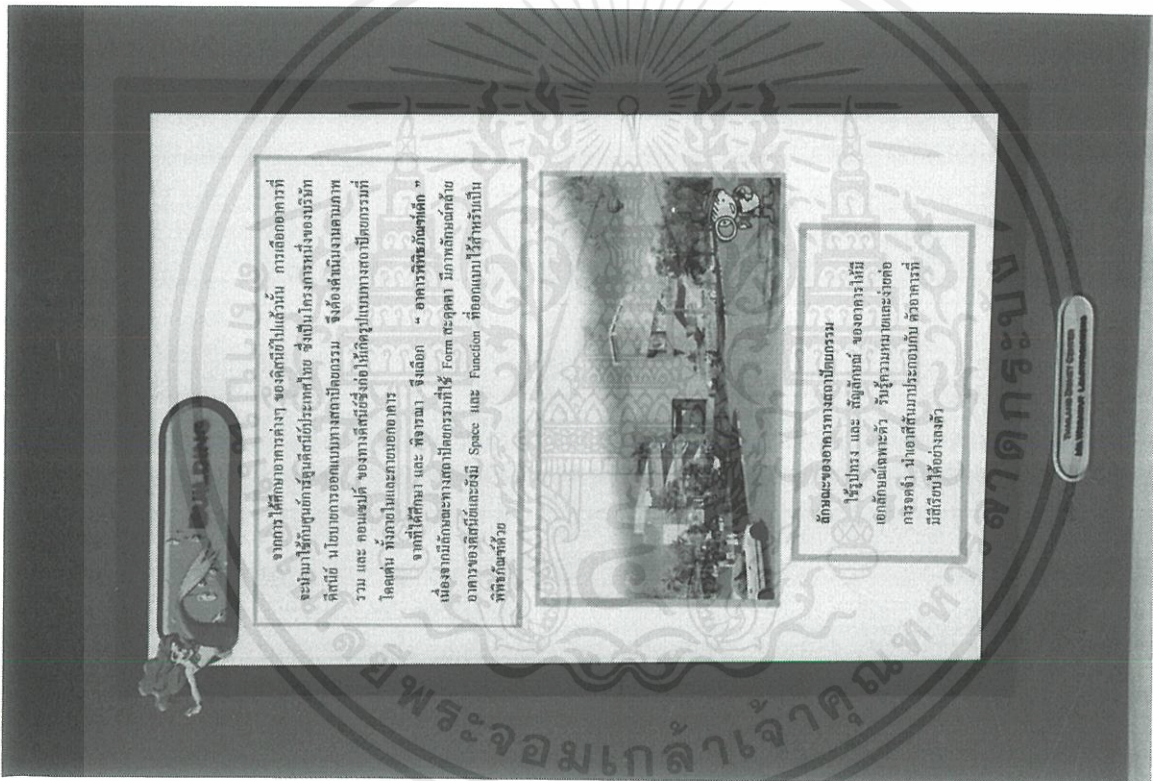 BUILDING
จากการได้ศึกษาอาคารต่างๆ ของดิสนีย์ไปแล้วนั้น การเลือกอาคารที่
จะนำมาใช้กับศูนย์การ์ตูนดิสนีย์ประเทศไทย ซึ่งเป็นโครงการหนึ่งของบริษัท
ดิสนีย์ นโยบายการออกแบบทางสถาปัตยกรรม จึงต้องดำเนินงานตามภาพ
รวม และ คอนเซปต์ ของทางดิสนีย์ซึ่งก่อให้เกิดรูปแบบทางสถาปัตยกรรมที่
โดดเด่น ทั้งภายในและภายนอกอาคาร
จากที่ได้ศึกษา และ พิจารณา จึงเลือก “ อาคารพิพิธภัณฑ์เด็ก ”
เนื่องจากมีลักษณะทางสถาปัตยกรรมที่ใช้ Form สะดุดตา มีภาพลักษณ์คล้าย
อาคารของดิสนีย์และยังมี Space และ Function ที่ออกแบบไว้สำหรับเป็น
พิพิธภัณฑ์ด้วย
ลักษณะของอาคารทางสถาปัตยกรรม
ใช้รูปทรง และ สัญลักษณ์ ของอาคารให้มี
เอกลักษณ์เฉพาะตัว รับรู้ความหมายและง่ายต่อ
การจดจำ นำเอาสีสันมาประกอบกับ ตัวอาคารที่
มีสีเรียบได้อย่างลงตัว
THAILAND DISNEY CENTER
พระจอมเกล้าเจ้าคุณทหารลาดกระบัง